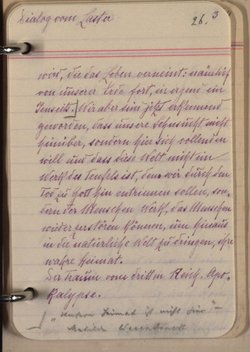 Dialog vom Laster
26. 3
wird, die das Leben verneint: nämlich
von unserer Erde fort, in irgend ein
Jenseits. Wir aber sind jetzt erkennend
geworden, dass unsere Sehnsucht nicht
hinüber, sondern hin Weg vollenden
will und dass diese Welt nicht ein
Werk des Teufels ist, dem wir durch den
Tod zu Gott hin entrinnen sollen, son-
dern der Menschen Werk, das Menschen
wieder zerstören können, um hinaus
in die natürliche Welt zu dringen, ihre
wahre Heimat.
Der Traum vom dritten Reich. Apo-
kalypse.
"Unsere Heimat ist nicht hier"